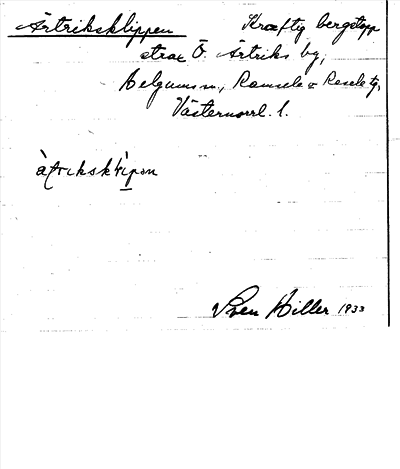 Ärtriksklippen Kraftig bergstopp
strax Ö. Ärtriks by,
Helgums sn, Ramsele o Resele tg,
Västernorrl. l.
Sven Hiller 1933